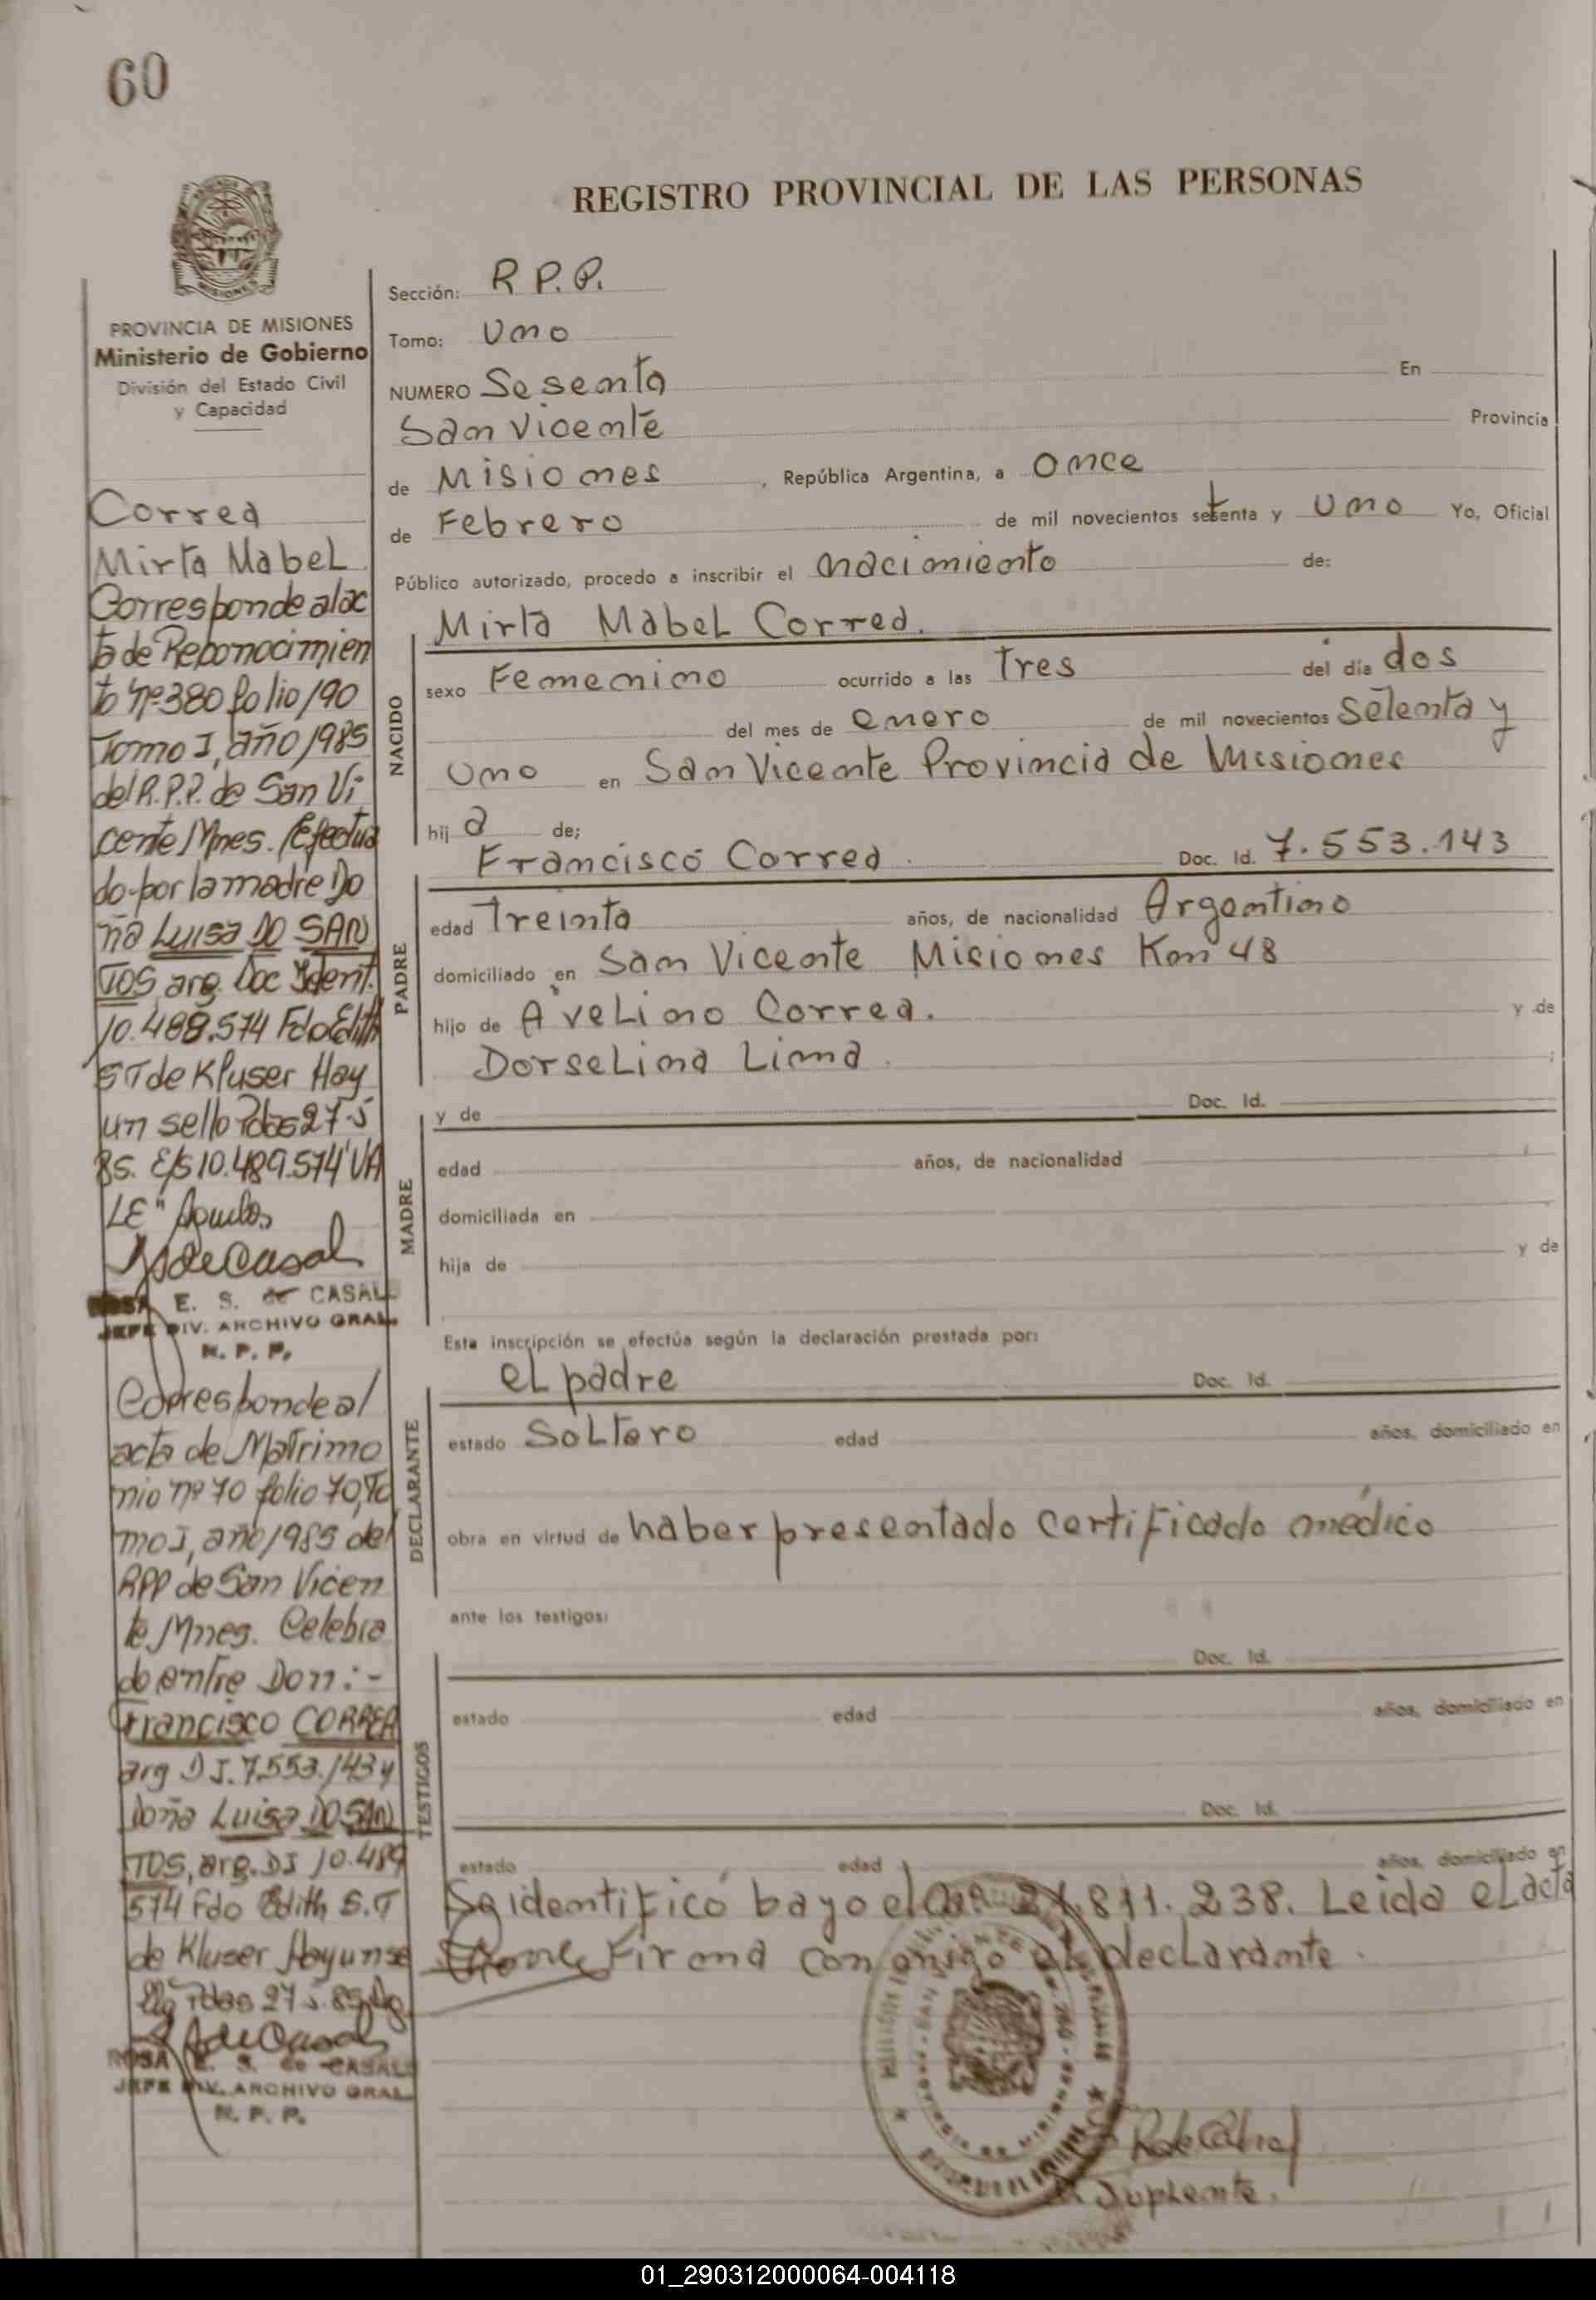 60
REGISTRO PROVINCIAL DE LAS PERSONAS
MISIONES
PROVINCIA DE MISIONES
Ministerio de Gobierno
División del Estado Civil
y Capacidad
Correa
Mirta Mabel
Corresponde al ac
ta de Reconocimien
to nº 380 folio 190
Tomo I, año 1985
del R.P.P. de San Vi
cente Mnes. Efectua
do por la madre Do
ña Luisa DO SAN
TOS arg. Doc Ident.
10.488.574 Fdo Edith
S T de Kluser Hay
un sello Pdas 27-5
85. E/S 10.489.574 "VA
LE"
ROSA E. S. de CASALL
JEFE DIV. ARCHIVO GRAL.
R. P. P.
Corresponde al
acta de Matrimo
nio nº 70 folio 70, To
mo I, año 1985 del
RPP de San Vicen
te Mnes. Celebra
do entre Don:-
Francisco CORREA
arg D I. 7.553.143 y
Doña Luisa DO SAN
TOS, arg. DI 10.489
574 Fdo Edith S. T
de Kluser Hay un se
llo Pdas 27 5. 85
ROSA E. S. de CASALL
JEFE DIV. ARCHIVO GRAL.
R. P. P.
Sección: R.P.P.
Tomo: Uno
NUMERO Sesenta En
San Vicente Provincia
de Misiones, República Argentina, a once
de Febrero de mil novecientos setenta y Uno Yo, Oficial
Público autorizado, procedo a inscribir el nacimiento de:
Mirta Mabel Correa.
NACIDO
sexo Femenino ocurrido a las Tres del día dos
del mes de enero de mil novecientos setenta y
Uno en San Vicente Provincia de Misiones
hij a de;
Francisco Correa. Doc. Id. 7.553.143
PADRE
edad Treinta años, de nacionalidad Argentino
domiciliado en San Vicente Misiones Km 48
hijo de Avelino Correa. y de
Dorselina Lima. ;
MADRE
y de Doc. Id.
edad años, de nacionalidad
domiciliada en
hija de y de
Esta inscripción se efectúa según la declaración prestada por:
el padre Doc. Id.
DECLARANTE
estado Soltero edad años, domiciliado en
obra en virtud de haber presentado certificado médico
ante los testigos:
TESTIGOS
Doc. Id.
estado edad años, domiciliado en
Doc. Id.
estado edad años, domiciliado en
Se identificó bayo el 21.811.238. Leida el acta
Firma conmigo el declarante.
R de Cabral
Suplente.
01_290312000064-004118